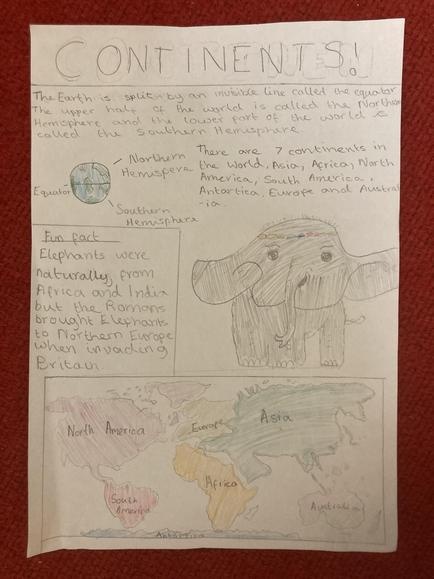 CONTINENTS!
The Earth is split by an invisible line called the equator
The upper half of the world is called the Northern
Hemisphere and the lower part of the world is
called the Southern Hemisphere.
There are 7 continents in
the World, Asia, Africa, North
America, South America,
Antartica, Europe and Austral
-ia.
Northern
Hemispere
Equator
Southern
Hemisphere
Fun fact
Elephants were
naturally from
Africa and India
but the Romans
brought Elephants
to Northern Europe
when invading
Britain
North America
Europe
Asia
Africa
South
America
Australia
Antartica